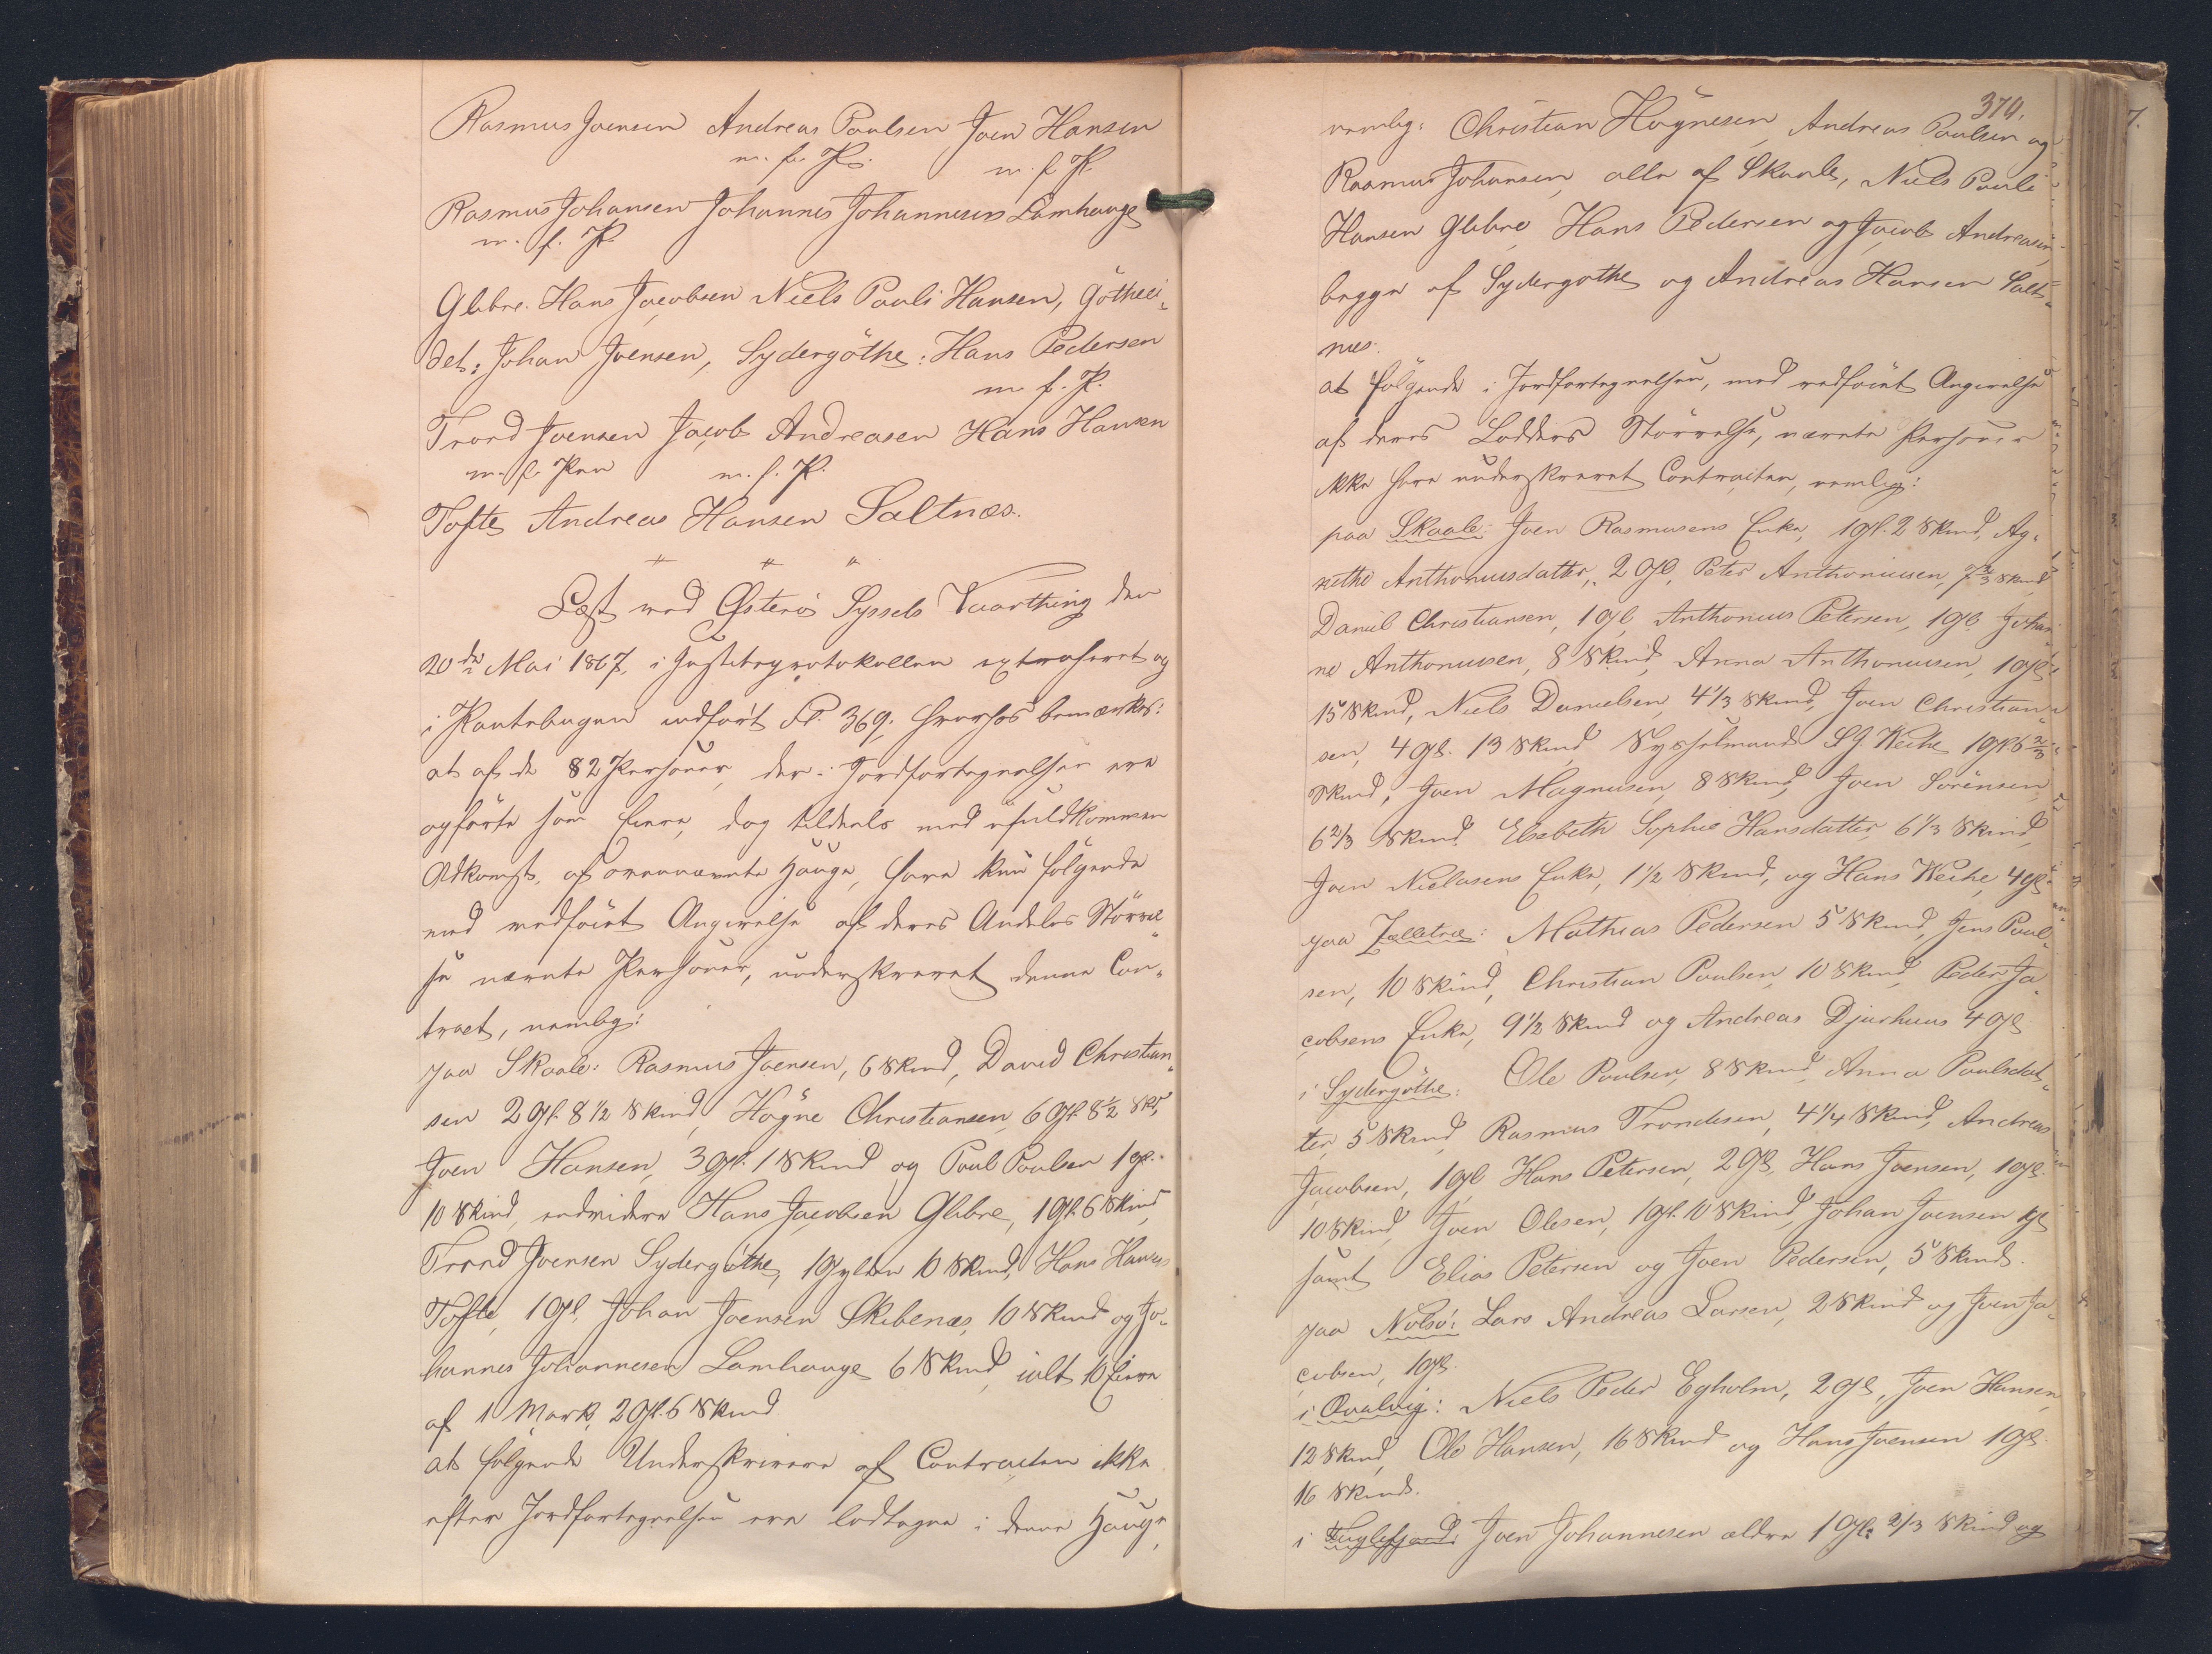 Rasmus Joensen Andreas Poulsen Joen Hansen
m. f. P. m. f. P.
Rasmus Johansen Johannes Johannesen Lamhauge
m. f. P.
Glibre. Hans Jacobsen Niels Pauli Hansen, Götheei-
det: Johan Joensen, Sydergöthe: Hans Pedersen
m. f. P.
Trond Joensen Jacob Andreasen Hans Hansen
m. f. Pen m. f. P.
Tofte Andreas Hansen Saltnæs.
" " "
Læst ved Østerø Syssels Vaarthing den
20de Mai 1867, i Justitsprotokollen extraheret og
i Pantebogen indført Fl. 369; hvorhos bemærkes:
at af de 82 Personer, der i Jordfortegnelsen ere
opførte som Eiere, dog tildeels med ufuldkommen
Adkomst, af ovennævnte Hauge, have kun følgende
med vedføiet Angivelse af deres Andeles Størrel-
se nævnte Personer, underskrevet denne Con-
tract, nemlig:
paa Skaale: Rasmus Joensen, 6 Skind, David Christian-
sen 2 Gl. 8 1/2 Skind, Högne Christiansen, 6 Gl. 8 1/2 Sk,
Joen Hansen, 3 Gl. 1 Skind og Poul Poulsen 1 Gl.
10 Skind, endvidere Hans Jacobsen Glibre, 1 Gl. 6 Skind
Trond Joensen Sydergöthe, 1 Gylden 10 Skind, Hans Hansen
Tofte, 1 Gl. Johan Joensen Skibenæs, 10 Skind og Jo-
hannes Johannesen Lamhauge 6 Skind, ialt 10 Eiere
af 1 Mark, 2 Gl. 6 Skind
at følgende Underskrivere af Contracten ikke
efter Jordfortegnelsen ere lodtagne i denne Hauge,
370.
nemlig: Christian Högnesen, Andreas Poulsen og
Rasmus Johansen, alle af Skaale, Niels Pauli
Hansen Glibre, Hans Pedersen og Jacob Andreasen,
begge af Sydergöthe og Andreas Hansen Salt-
næs.
at følgende i Jordfortegnelsen, med vedføiet Angivelse
af deres Lodders Størrelse, nævnte Personer
ikke have underskrevet Contracten, nemlig:
paa Skaale: Joen Rasmusens Enke, 1 Gl. 2 Skind, Ag-
nethe Anthoniusdatter, 2 Gl, Peter Anthoniusen, 7 2/3 Skind,
Daniel Christiansen, 1 Gl, Anthonius Petersen, 1 Gl. Johan-
ne Anthoniusen, 8 Skind, Anna Anthoniusen, 1 Gl.
15 Skind, Niels Danielsen, 4 1/3 Skind, Joen Christian-
sen, 4 Gl. 13 Skind, Sysselmand S J. Weihe 1 Gl. 6 2/3
Skind, Joen Magnusen, 8 Skind, Joen Sörensen,
6 2/3 Skind. Elsebeth Sophie Hansdatter, 6 1/3 Skind,
Joen Nielasens Enke, 1 1/2 Skind, og Hans Weihe, 4 Gl.
paa Zelletræ: Mathias Pedersen 5 Skind, Jens Poul-
sen, 10 Skind, Christian Poulsen, 10 Skind, Peder Ja-
cobsens Enke, 9 1/2 Skind og Andreas Djurhuus 4 Gl.
i Sydergöthe: Ole Poulsen, 8 Skind, Anna Poulsdat-
ter, 5 Skind, Rasmus Trondesen, 4 1/4 Skind, Andreas
Jacobsen, 1 Gl, Hans Petersen, 2 Gl, Hans Joensen, 1 Gl.
10 Skind, Joen Olesen, 1 Gl. 10 Skind, Johan Joensen 1 Gl
samt Elias Petersen og Joen Pedersen, 5 Skind.
paa Nolsö: Lars Andreas Larsen, 2 Skind og Joen Ja-
cobsen, 1 Gl.
i Qvalvig: Niels Peder Egholm, 2 Gl, Joen Hansen,
12 Skind, Ole Hansen, 16 Skind og Hans Joensen 1 Gl.
16 Skind.
i Fuglefjord: Joen Johannesen ældre 1 Gl. 2/3 Skind og